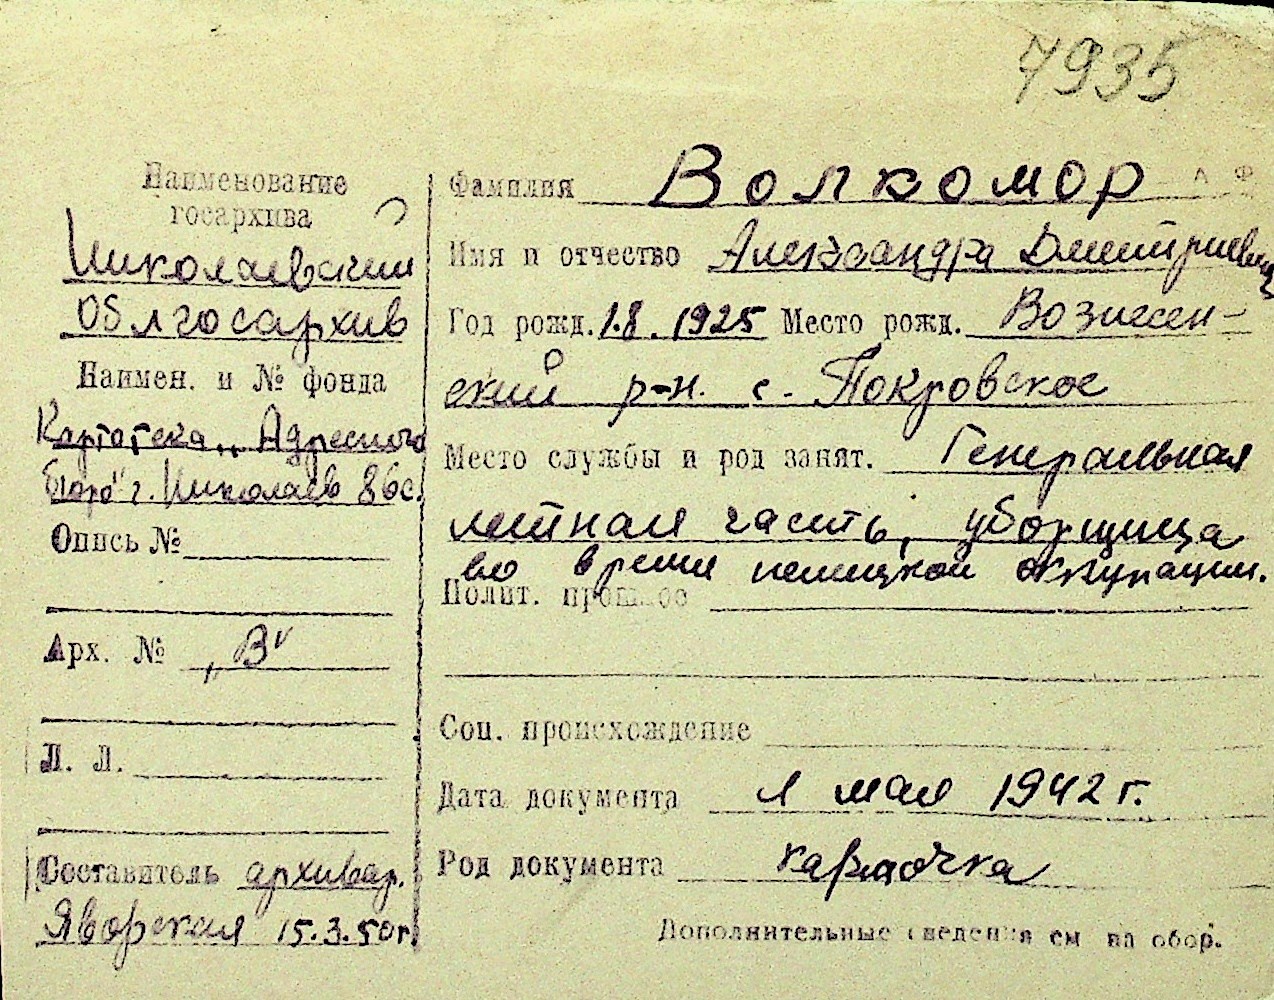 7935
Наименование
госархива
Николаевский
Облгосархив
Наимен. и № фонда
Картотека „Адресного
бюро" г. Николаев 86с.
Опись №
Арх. № „В"
Л. Л.
Составитель архивар.
Яворская 15.3.50г.
Фамилия Волкомор
Имя и отчество Александра Дмитриевна
Год рожд. 1.8.1925 Место рожд. Вознесен-
ский р-н. с. Покровское
Место службы и род занят. Генеральная
летная часть, уборщица
во время немецкой оккупации.
Полит. прошлое
Соц. происхождение
Дата документа 1 мая 1942 г.
Род документа карточка
Дополнительные сведения см на обор.